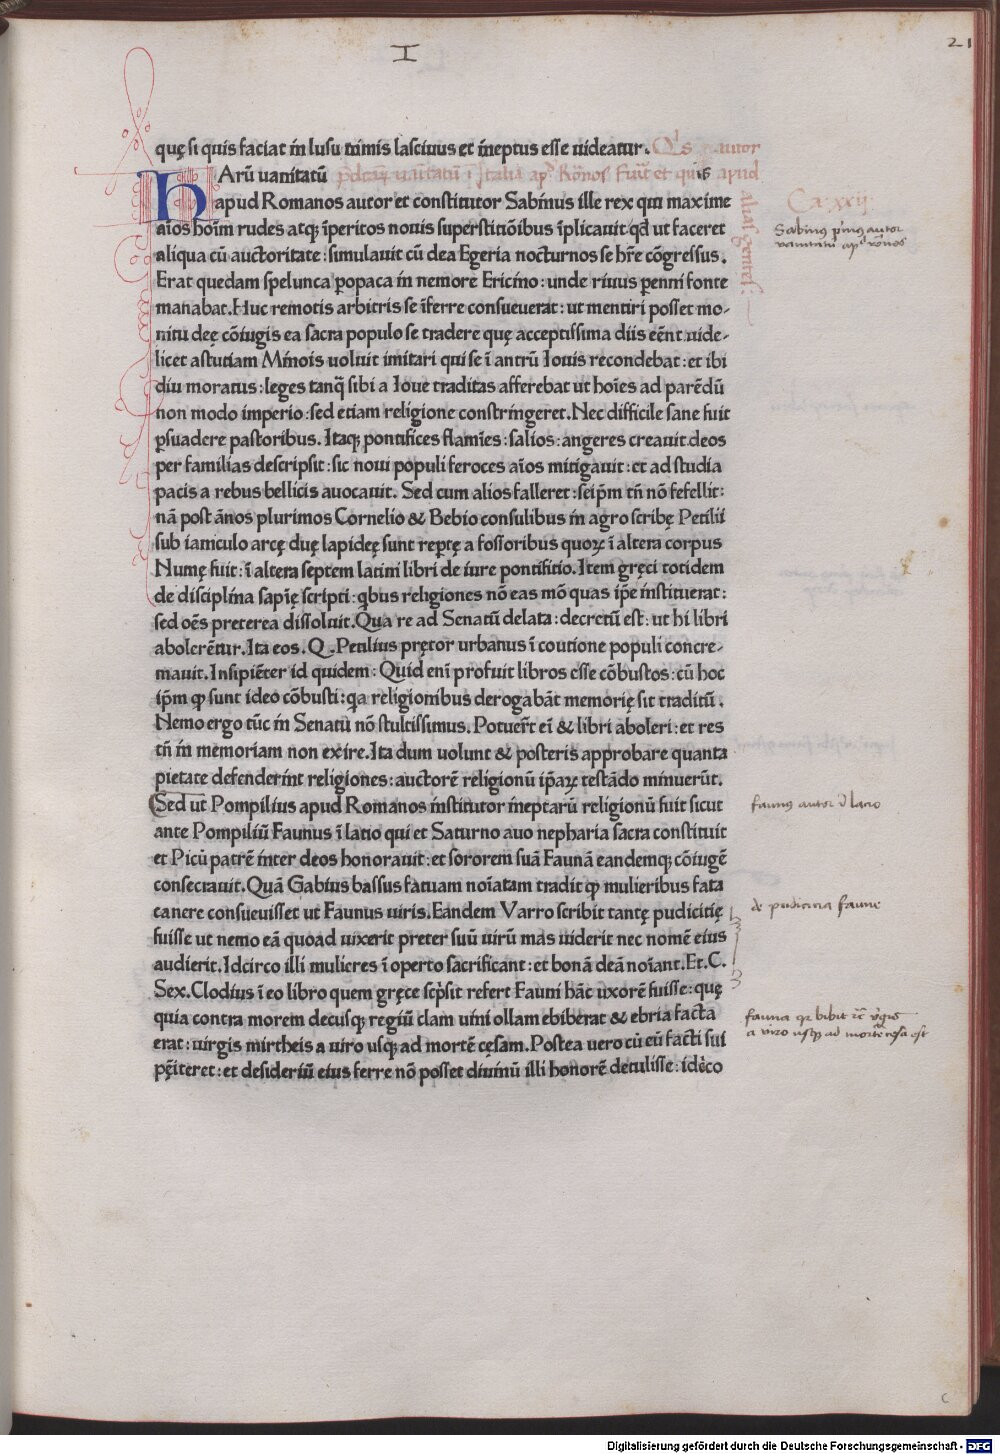 I
21
quę si quis faciat in lusu nimis lasciuus et ineptus esse uideatur. Qs autor
HArū uanitatū p̄dictaꝝ uanitatū i Italia ap̄ Ro̅nos fuit et quis apud alias gentes:
Ca. xxij
apud Romanos autor et constitutor Sabinus ille rex qui maxime
Sabinus p̄mus autor
aīos hoīm rudes atqꝫ īperitos nouis superstitiōibus īplicauit qđ ut faceret
vanitatū ap̄ rōnos
aliqua cū auctoritate: simulauit cū dea Egeria nocturnos se hr̄e cōgressus.
Erat quedam spelunca popaca in nemore Ericino: unde riuus penni fonte
manabat. Huc remotis arbitris se īferre consueuerat: ut mentiri posset mo-
nitu deę cōiugis ea sacra populo se tradere quę acceptissima diis eēnt uide-
licet astutiam Minois uoluit imitari qui se ī antrū Iouis recondebat: et ibi
diu moratus: leges tanq̄ sibi a Ioue traditas afferebat ut hoīes ad parēdū
non modo imperio: sed etiam religione constringeret. Nec difficile sane fuit
ꝑsuadere pastoribus. Itaqꝫ pontifices flamīes: salios: angeres creauit deos
per familias descripsit: sic noui populi feroces aīos mitigauit: et ad studia
pacis a rebus bellicis auocauit. Sed cum alios falleret: seip̄m tn̄ nō fefellit:
nā post ānos plurimos Cornelio & Bebio consulibus in agro scribę Petilii
sub ianiculo arcę duę lapideę sunt reꝑtę a fossoribus quoꝝ ī altera corpus
Numę fuit: ī altera septem latini libri de iure pontifitio. Item gręci totidem
de disciplina sapīę scripti: qbus religiones nō eas mō quas ip̄e instituerat:
sed oēs preterea dissoluit. Qua re ad Senatū delata: decretū est: ut hi libri
abolerētur. Ita eos. Q. Petilius prętor urbanus ī coutione populi concre-
mauit. Insipiēter id quidem: Quid enī profuit libros esse cōbustos: cū hoc
ip̄m ꝙ sunt ideo cōbusti: qa religionibus derogabāt memorię sit traditū.
Nemo ergo tūc in Senatu nō stultissimus. Potuer̄t eī & libri aboleri: et res
tn̄ in memoriam non exire. Ita dum uolunt & posteris approbare quanta
pietate defenderint religiones: auctorē religionū ip̄aꝝ testādo minuerūt.
Sed ut Pompilius apud Romanos institutor ineptarū religionū fuit sicut
faunus autor ī lacio
ante Pompiliū Faunus ī latio qui et Saturno auo nepharia sacra constituit
et Picū patrē inter deos honorauit: et sororem suā Faunā eandemqꝫ cōiugē
consecrauit. Quā Gabius bassus fatuam noīatam tradit ꝙ mulieribus fata
canere consueuisset ut Faunus uiris. Eandem Varro scribit tantę pudicitię
de pudicicia faune
fuisse ut nemo eā quoad uixerit preter suū uirū mas uiderit nec nomē eius
audierit. Idcirco illi mulieres ī operto sacrificant: et bonā deā noīant. Et. C.
Sex. Clodius ī eo libro quem gręce scp̄sit refert Fauni hāc uxorē fuisse: quę
quia contra morem decusqꝫ regiū clam uini ollam ebiberat & ebria facta
fauna qꝛ bibit
erat: uirgis mirtheis a uiro usqꝫ ad mortē cęsam. Postea uero cū eū facti sui
a viro usqꝫ ad mortē cesa est
pęiteret: et desideriū eius ferre nō posset diuinū illi honorē detulisse: idèco
c
Digitalisierung gefördert durch die Deutsche Forschungsgemeinschaft - DFG